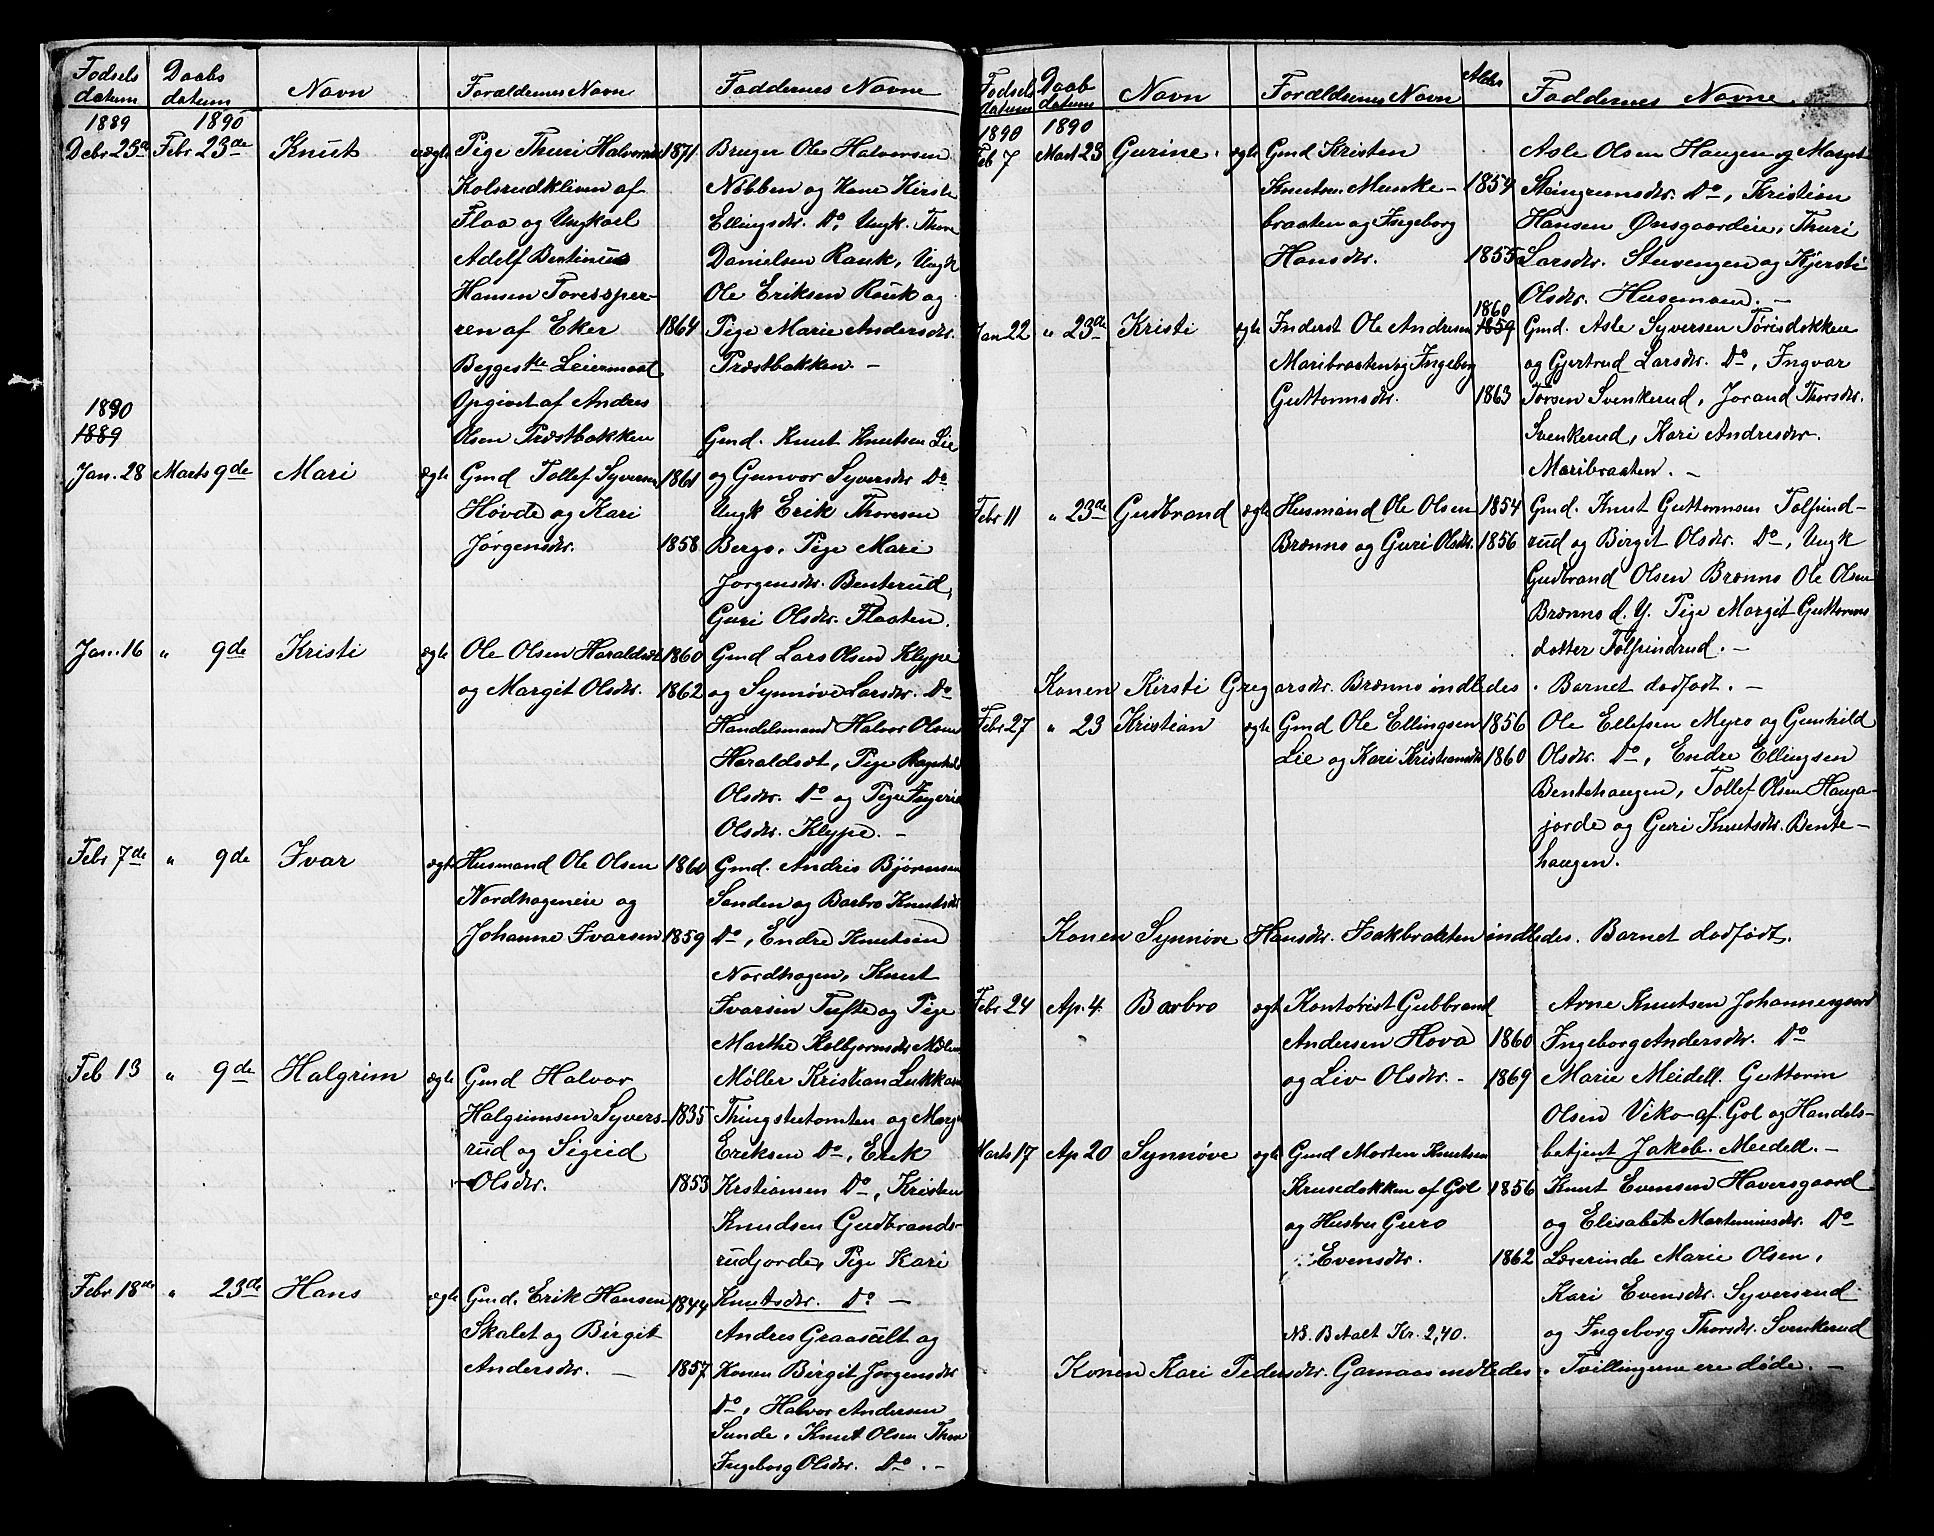 Fødsels datum | Daabs datum | Navn | Forældrenes Navn | Faddernes Navne
1889 | 1890
Decbr 25de | Febr 23de | Knut | uægte | Pige Thuri Halvorsdr | 1871 | Bruger Ole Halvorsen
Kolsrudkliven af | Nobben og Kone Kirsti
Flaa og Ungkarl | Ellingsdr. Do, Ungk. Thore
Adolf Bentinius | Danielsen Rauk, Ungk
Hansen Foressper- | Ole Eriksen Rouk og
ren af Eker | 1864 | Pige Marie Andersdr.
Begges 1ste Leiermaal | Præstbakken. –
Opgivet af Andres
Olsen Præstbakken
1890
1889
Gmd. Knut Knutsen Lie
Jan. 28 | Marts 9de | Mari | ægte | Gmd Tollef Syversen | 1861 | og Gunvor Syversdr Do
Høvde og Kari | Ungk Erik Thoresen
Jørgensdr. | 1858 | Bergo, Pige Mari
Jorgensdr. Benterud,
Guri Olsdr. Flaaten.
Jan. 16 | " 9de | Kristi | ægte | Ole Olsen Haraldset | 1860 | Gmd Lars Olsen Klype
og Margit Olsdr. | 1862 | og Synnøve Larsdr. Do
Handelsmand Halvor Olsen
Haraldset, Pige Ragnhild
Olsdr. Do og Pige Ingerid
Olsdr. Klype. –
Febr 7de | " 9de | Ivar | ægte | Husmand Ole Olsen | 1860 | Gmd. Andris Bjørnsen
Nordhageneie og | Sanden og Barbro Knutsdr
Johanne Ivarsen | 1859 | Do, Endre Knutsen
Nordhagen, Knut
Ivarsen Tufte og Pige
Marthe Kolbjornsdr Molen
Feb 13 | " 9de | Halgrim | ægte | Gmd Halvor | Møller Kristian Lukkasen
Halgrimsen Syvers- | 1835 | Thingstutomten og Marg
rud og Sigrid | Eriksen Do, Erik
Olsdr. | 1853 | Krstiansen Do, Kristen
Knudsen Gudbrands-
rudjorde, Pige Kari
Febr 18de | " 23de | Hans | ægte | Gmd. Erik Hansen | 1844 | Knutsdr. Do –
Skalet og Birgit | Andres Graasult og
Andersdr. – | 1857 | Konen Birgit Jørgensdr
Do, Halvor Andersen
Sunde, Knut Olsen Thon
Ingeborg Olsdr. Do. –
Fødsels datum | Daab datum | Navn | Forældrenes Navn | Alder | Faddernes Navne.
1890 | 1890
Feb 7 | Mart 23 | Gurine. | ægte | Gmd Kristen | Asle Olsen Haugen og Marget
Knutsen Munke- | 1854 | Steingrimsdr. Do, Kristian
braaten og Ingeborg | Hansen Ønsgaardeie, Thuri
Hansdr. | 1855 | Larsdr. Stuvengen og Kjersti
Olsdr. Husemoen. –
1860
Jan 22 | " 23de | Kristi | ægte | Inderst Ole Andresen | 1859 | Gmd. Asle Syversen Törisdokken
Maribraaten og Ingeborg | og Gjertrud Larsdr. Do, Ingvar
Guttormsdr. | 1863 | Torsen Svenkerud, Jorand Thorsdr.
Svenkerud, Kari Andresdr.
Maribraaten. –
Febr 11 | " 23de | Gudbrand | ægte | Husmand Ole Olsen | 1854 | Gmd. Knut Guttormsen Tolfsind-
Brænno og Guri Olsdr. | 1856 | rud og Birgit Olsdr. Do, Ungk
Gudbrand Olsen Brenno Ole Olsen
Brænno d. Y. Pige Margit Guttorms
datter Tolfsindrud. –
Konen Kirsti Gregarsdr. Brænno indledes. Barnet dødfødt. –
Febr 27 | " 23 | Kristian | ægte | Gmd Ole Ellingsen | 1856 | Ole Ellefsen Myro og Gunhild
Lie og Kari Kristiansdr | 1860 | Olsdr. Do, Endre Ellingsen
Bentehaugen, Tollef Olsen Hauga-
jorde og Guri Knutsdr. Bente-
haugen.
Konen Synnøve Hansdr. Isakbraaten indledes. Barnet dødfødt.
Febr 24 | Ap. 4. | Barbro | ægt | Kontorist Gubbrand | Arne Knutsen Johannesgaard
Andersen Hova | 1860 | Ingeborg Andersdr. Do
og Liv Olsdr. - | 1869 | Marie Meidell. Guttorm
Olsen Viko af Gol og Handels-
betjent Jakob Meidell. –
Marts 17 | Ap 20 | Synnøve | ægt | Gmd Morten Knutsen
Krusedokken af Gol | 1856 | Knut Evensen Haversgaard
og Hustru Guro | og Elisabet Martinusdr. Do
Evensdr. | 1862 | Lærerinde Marie Olsen,
Kari Evensdr. Syversrud
NB. Betalt Kr. 2,40. | og Ingeborg Thorsdr. Svenkerud
Konen Kari Pedersdr. Garnaas indledes. Tvillingerne ere døde. –